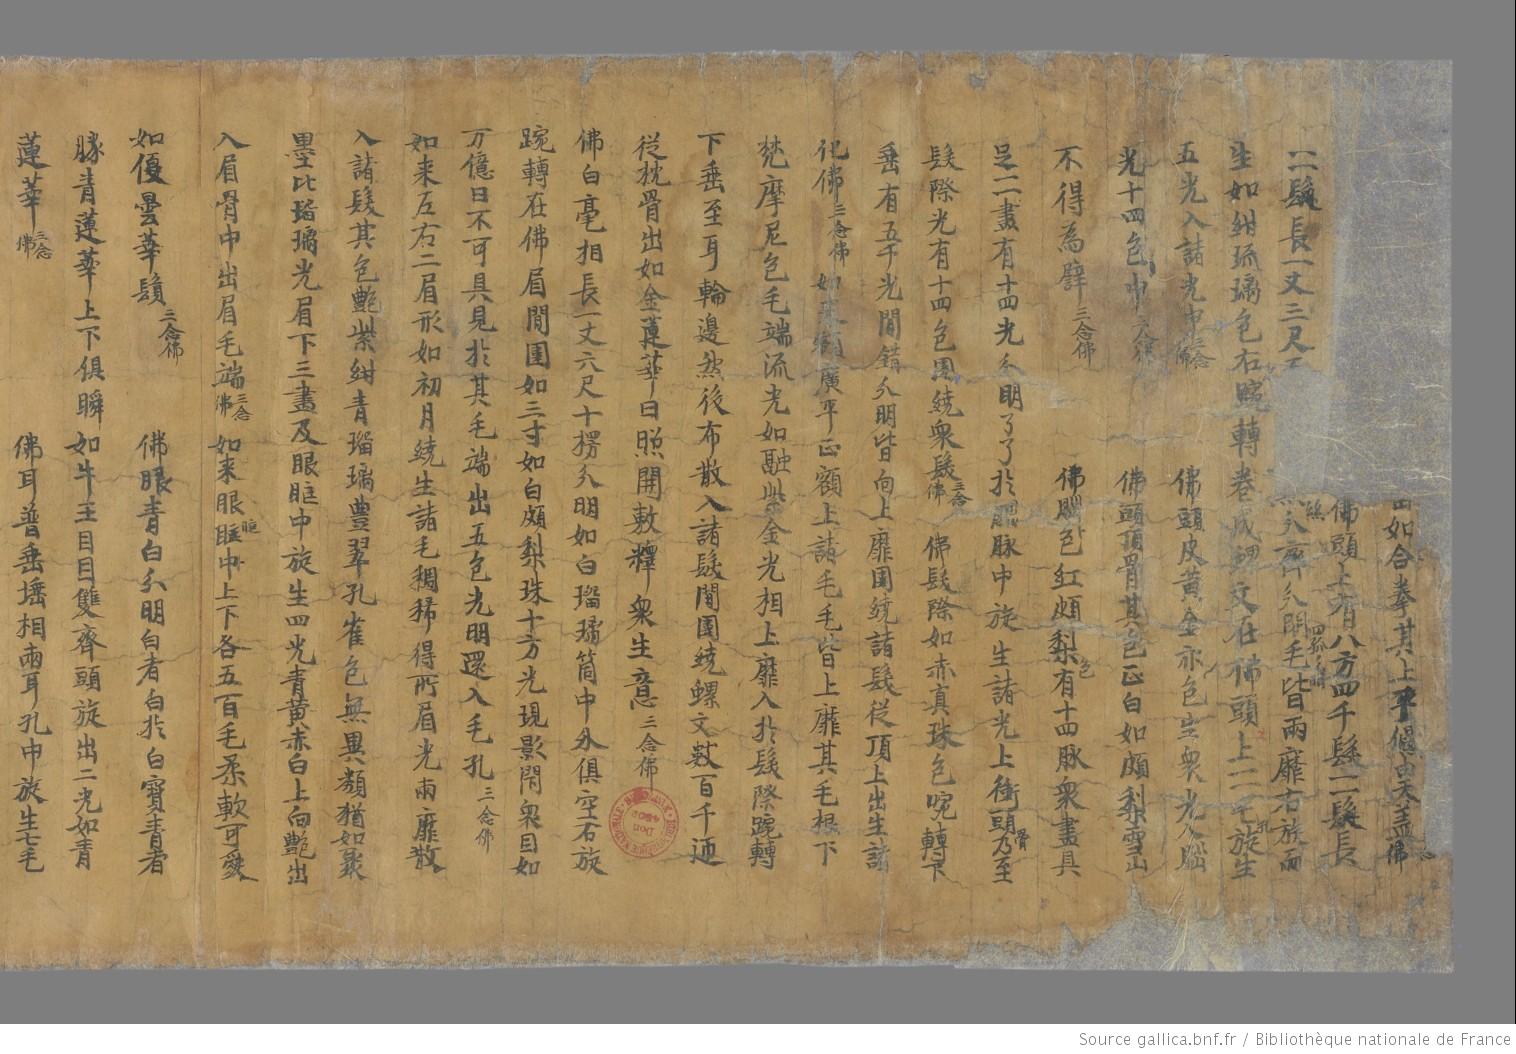 如合拳其上平偃由天盖佛
佛頭上有八方四千髮二髮長
𠆢齊𠆢開毛皆兩靡右旋而
二髮長一丈三尺五
生如紺琉璃色右蜿轉卷成螺文在佛頭上二毛旋生
五光入諸光中三念佛 佛頭皮黄金亦色生衆光入腦
光十四色中三念佛 佛頭頂骨其色正白如頗梨雪山
不得為辟三念佛 佛腦色紅頗梨色有十四脉衆畫具
足二畫有十四光分明了了於腦脉中旋生諸光上衝頭骨乃至
髮際光有十四色圍繞衆髮三念佛 佛髮際如赤真珠色啘轉下
垂有五千光間錯分明皆向上靡圍繞諸髮從頂上出生諸
化佛三念佛 如来額廣平正額上諸毛毛皆上靡其毛根下
梵摩尼色毛端流光如融紫金光相上靡入於髮際踠轉
下垂至耳輪邊然後布散入諸髮間圍繞螺文數百千迊
從枕骨出如金蓮華日照開敷釋衆生意三念佛
佛白亳相長一丈六尺十楞分明如白瑠璃筒中外俱空右旋
踠轉在佛眉間圍如三寸如白頗梨珠十方光現影閇衆目如
万億日不可具見於其毛端出五色光明還入毛孔三念佛
如来左右二眉形如初月繞生諸毛稠稀得所眉光兩靡散
入諸髮其色艶紫紺青瑠璃豊翠孔雀色無異類猶如聚
墨比瑠璃光眉下三畫及眼眶中旋生四光青黄赤白上向艶出
入眉骨中出眉毛端三念佛 如来眼眶眶中上下各五百毛柔軟可愛
如優曇華鬚三念佛 佛眼青白分明白者白於白寳青者
勝青蓮華上下俱瞬如牛王目目雙齊頭旋出二光如青
蓮華三念佛 佛耳普垂埵相兩耳孔中旋生七毛
BIBLIOTHÈQUE NATIONALE
Don
Source gallica.bnf.fr / Bibliothèque nationale de France